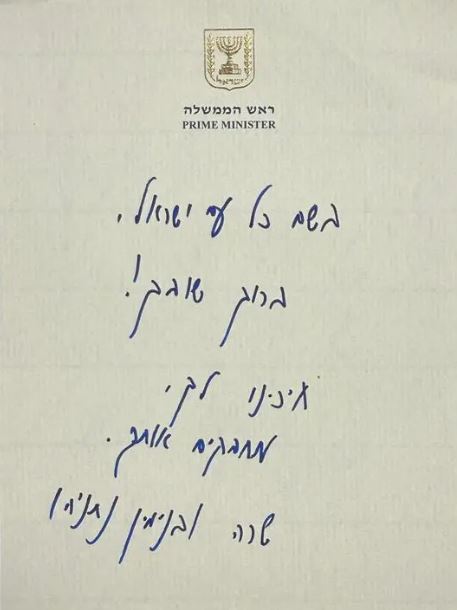 ישראל
ראש הממשלה
PRIME MINISTER
בשם כל עם ישראל,
ברוך שובך!
חיכינו לך,
מחבקים אותך.
שרה ובנימין נתניהו